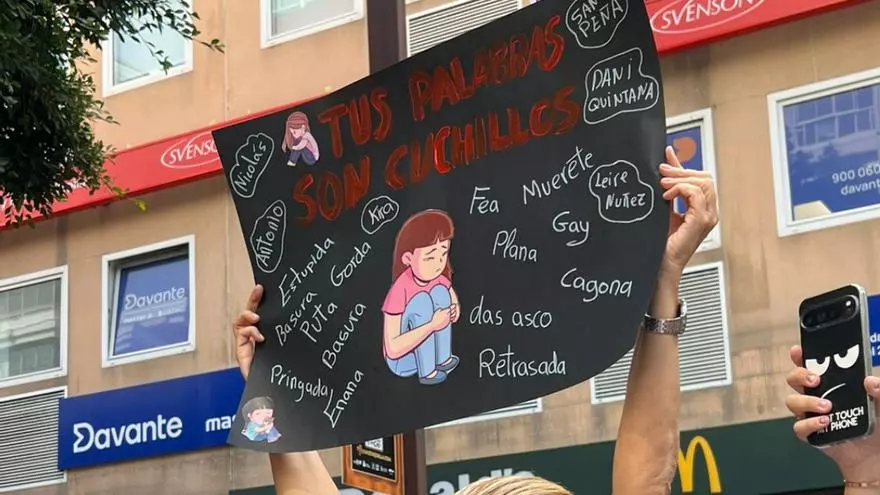 SVENSON
SVENSON
TUS PALABRAS
SON CUCHILLOS
SAN
PEÑA
DANI
QUINTANA
Nicolás
Antonio
Kira
Leire
Nuñez
Fea
Muerête
Gay
Plana
Cagona
das asco
Retrasada
Estupida
Gorda
Basura
Puta
Basura
Pringada
Enana
Davante
Davante
mas
900 060
davant
NOT
TOUCH
PHONE